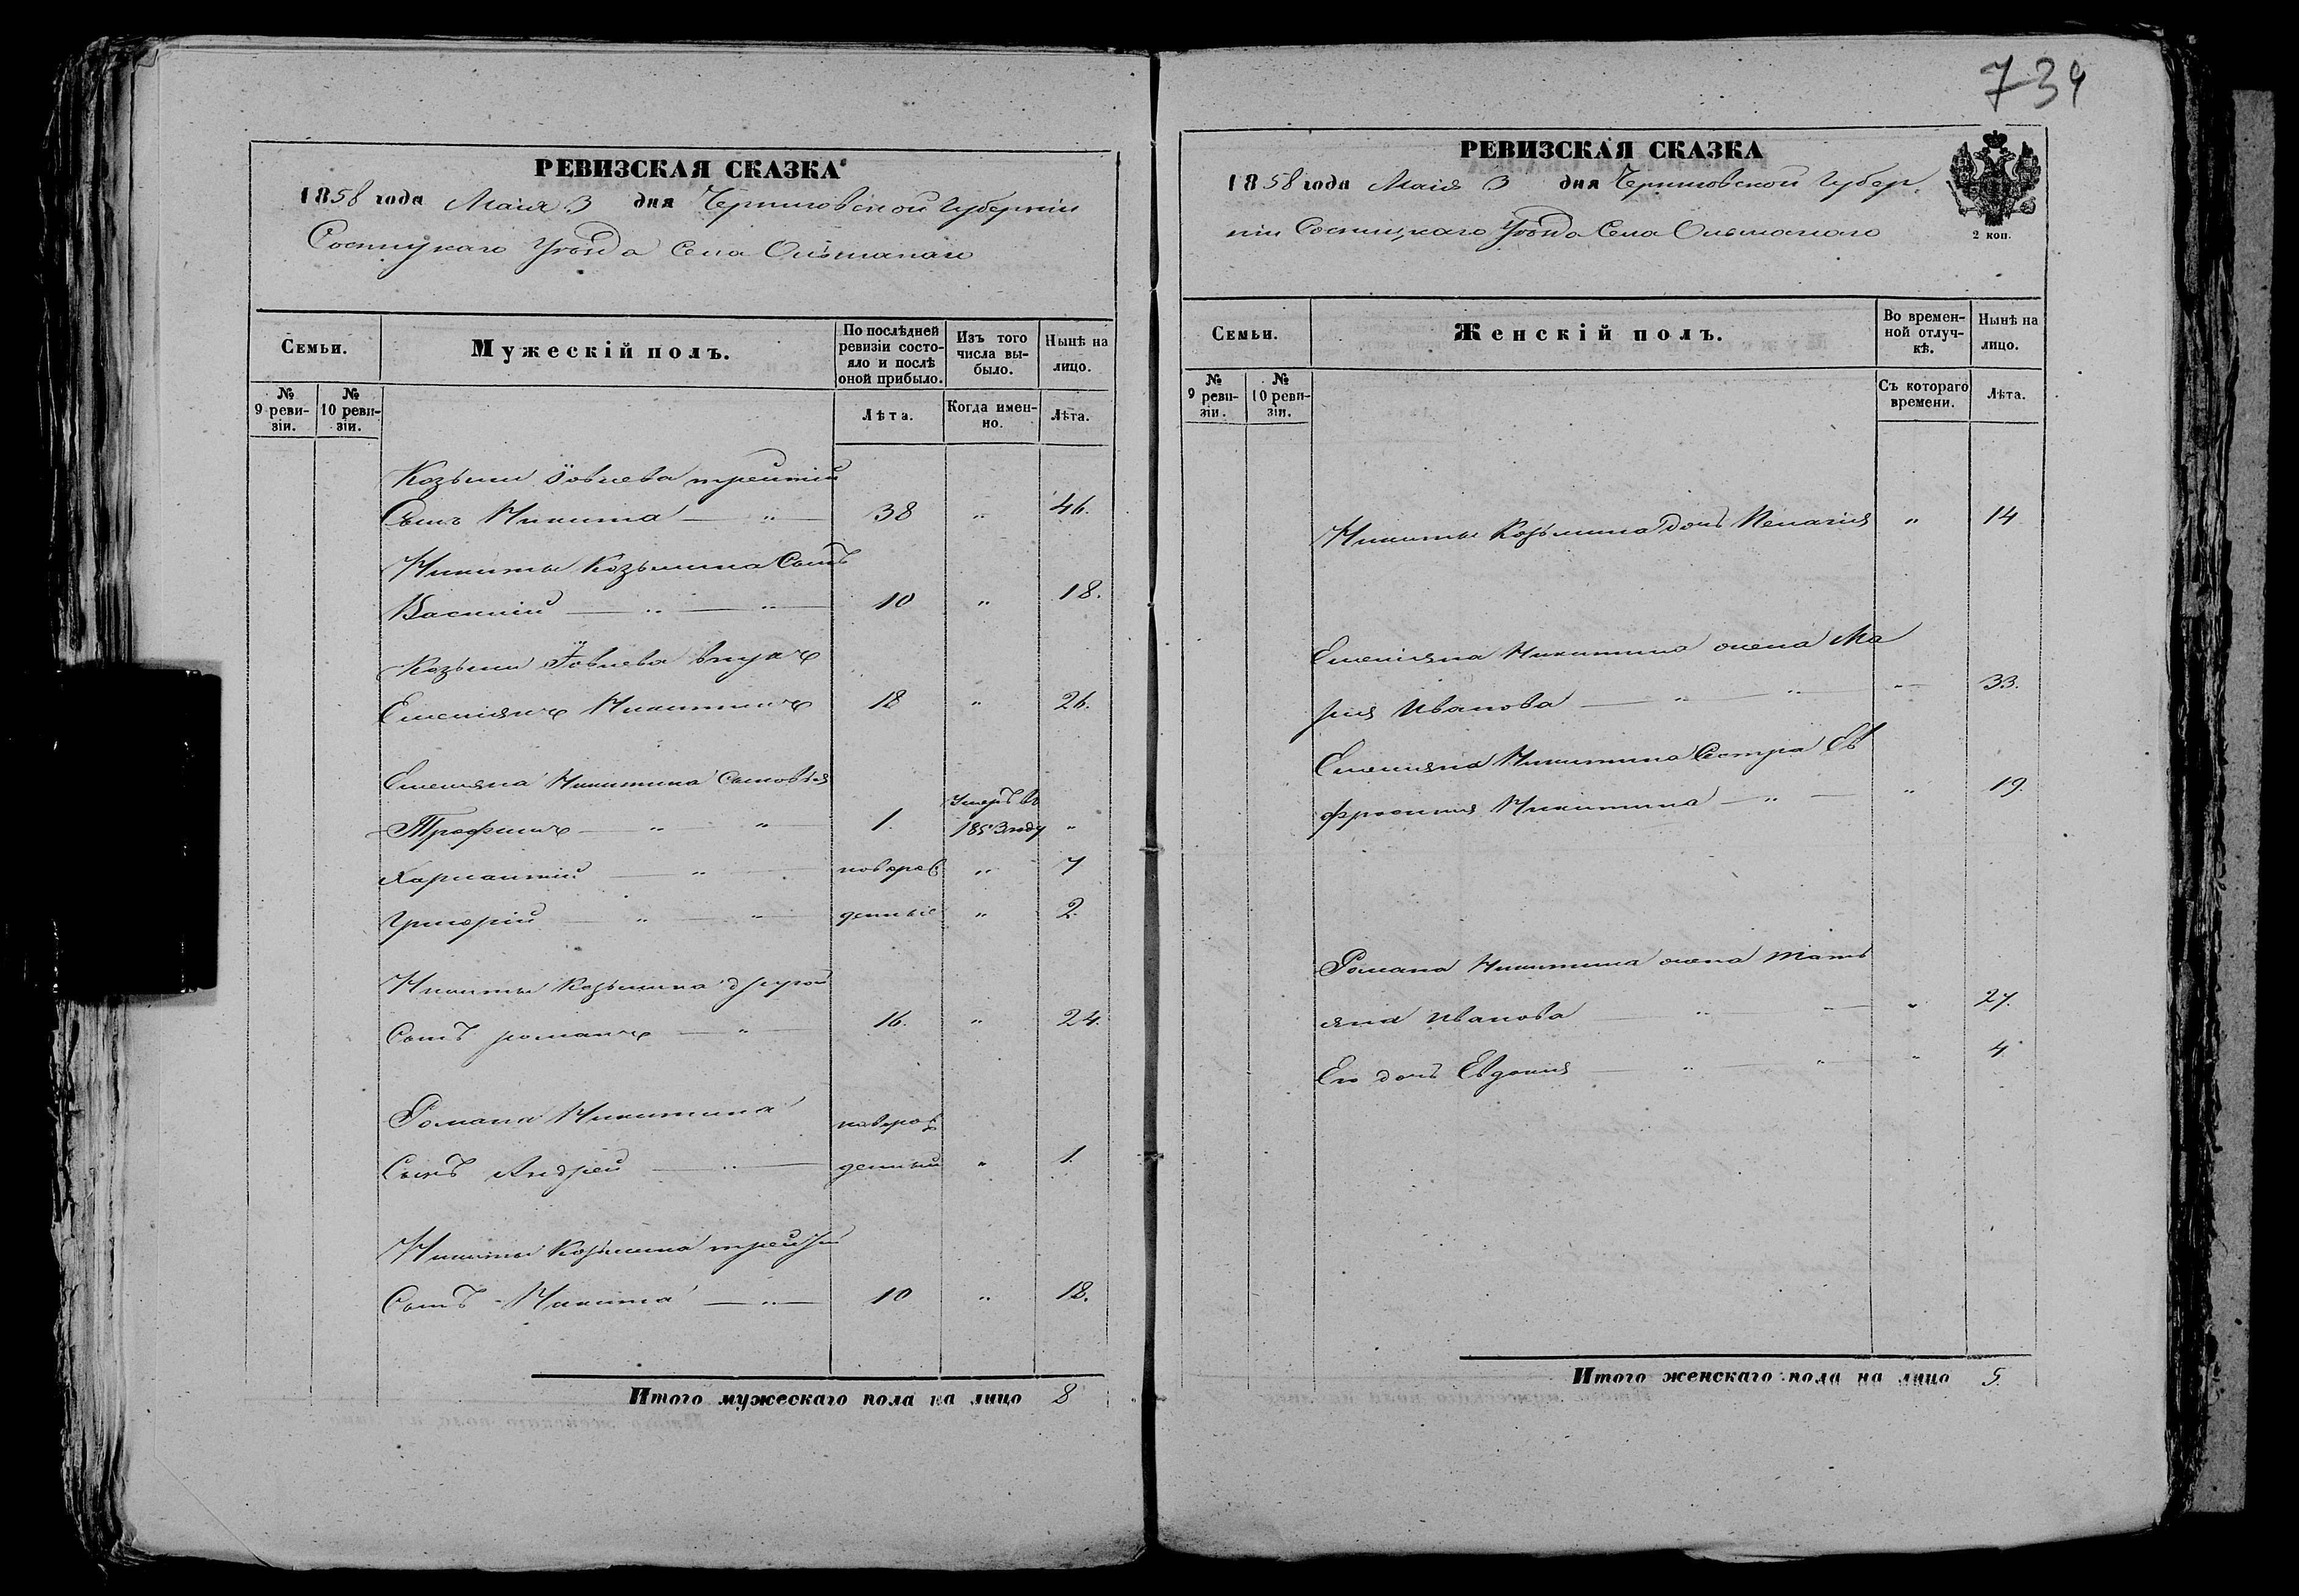 РЕВИЗСКАЯ СКАЗКА
1858 года Маія 3 дня Черниговской Губерніи
Сосницкаго Уѣзда Села Ольшанаго
Семьи.
Мужескій полъ.
По послѣдней ревизіи состояло и послѣ оной прибыло.
Изъ того числа выбыло.
Нынѣ на лицо.
№ 9 ревизіи.
№ 10 ревизіи.
Лѣта.
Когда именно.
Лѣта.
Козьмы Іовлева третій
Сынъ Никита — „ — 38 „ 46.
Никиты Козьмина Сынъ
Василій — „ — „ — 10 „ 18.
Козьмы Іовлева внукъ
Емеліянъ Никитинъ 18 „ 26.
Емеліяна Никитина Сыновья
Трофимъ — „ — „ 1. Умеръ въ 1853 году „
Харлантій — „ — новорож „ 7
Григорій — „ — „ денные „ 2.
Никиты Козьмина другой
Сынъ романъ — „ 16. „ 24.
Романа Никитина новорож
Сынъ Андрей — „ — денный „ 1.
Никиты Козьмина третій
Сынъ Никита — „ — 10 „ 18.
Итого мужескаго пола на лицо 8
739
РЕВИЗСКАЯ СКАЗКА
1858 года Маія 3 дня Черниговской Губер
ніи Сосницкаго Уѣзда Села Ольшанаго
2 коп.
Семьи.
Женскій полъ.
Во временной отлучкѣ.
Нынѣ на лицо.
№ 9 ревизіи.
№ 10 ревизіи.
Съ котораго времени.
Лѣта.
Никиты Козьмина дочь Пелагия „ 14
Емеліяна Никитина жена Ма
рия Иванова — „ — „ — „ 33.
Емельяна Никитина Сестра Ев
фросиния Никитина — „ — „ 19
Романа Никитина жена Тать
яна Иванова — „ — „ 27.
Его дочь Евдокия — „ — „ — „ 4
Итого женскаго пола на лицо 5.